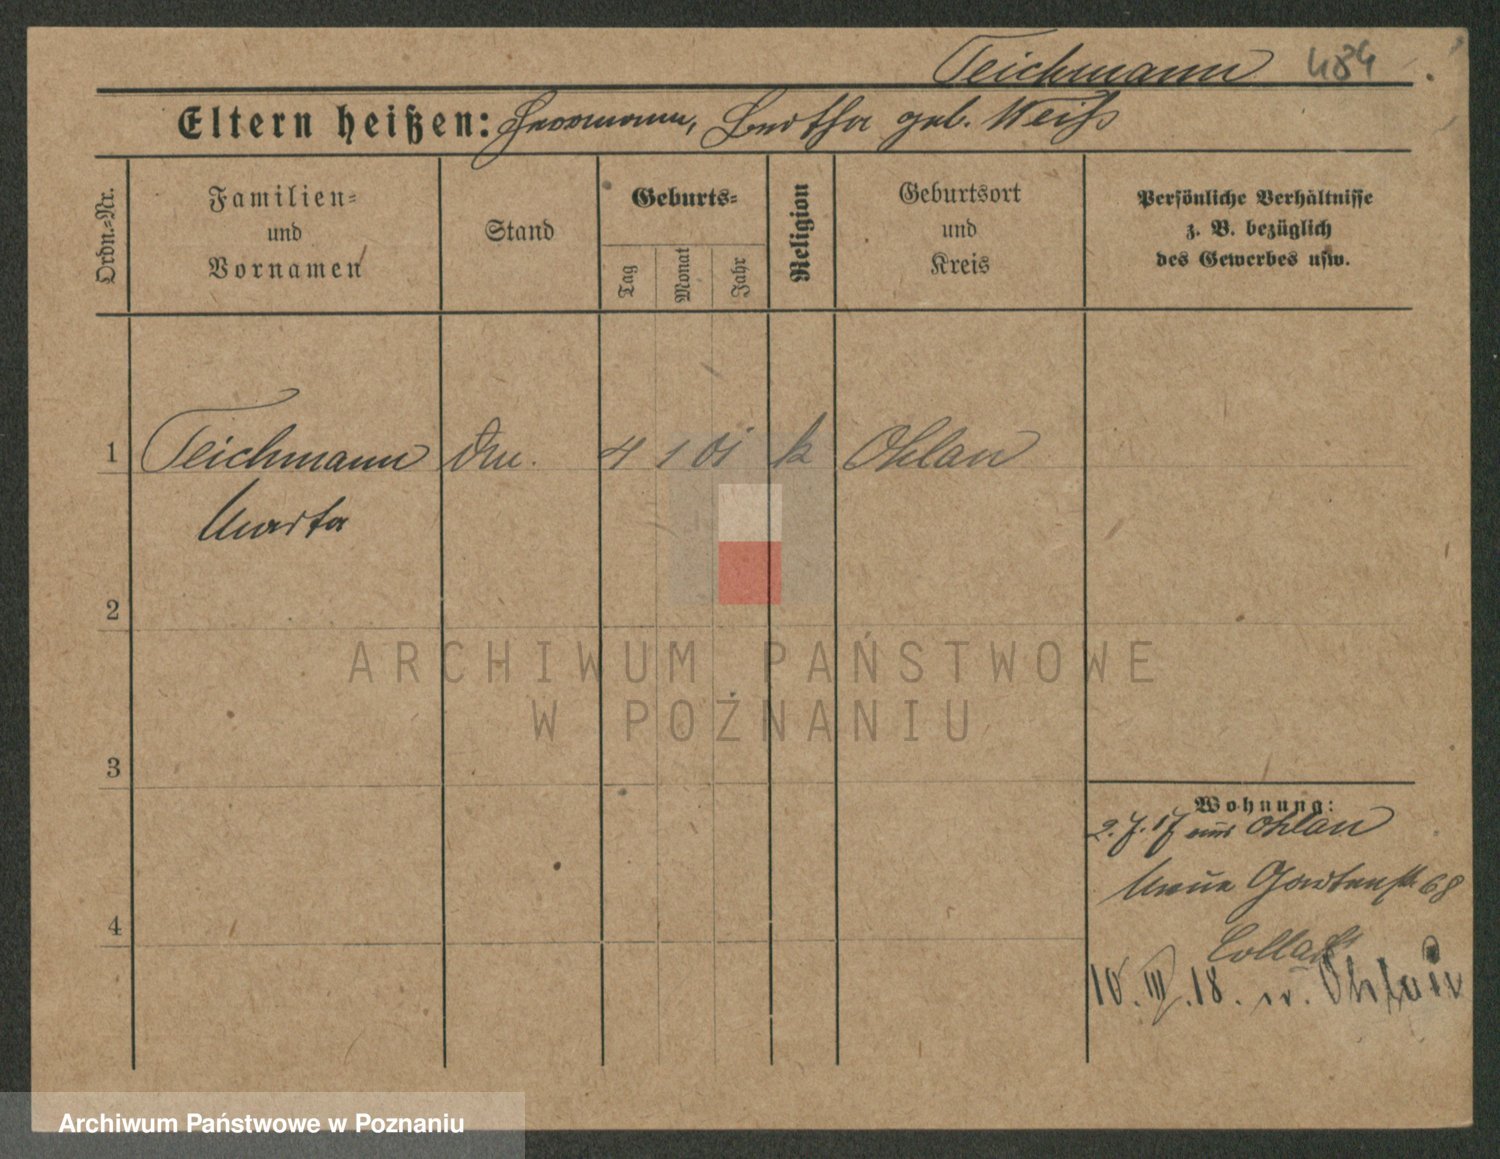 Teichmann 484
Eltern heißen: Herrmann, Bertha geb. Weiß
Ordn.-Nr.
Familien-
und
Vornamen
Stand
Geburts-
Tag
Monat
Jahr
Religion
Geburtsort
und
Kreis
Persönliche Verhältnisse
z. B. bezüglich
des Gewerbes usw.
1 Teichmann 4 1 01 k Ohlau
Marta
2
3
4
Wohnung:
2. 7. 17 aus Ohlau
Neue Gartenstr 68
10. III. 18. n. Ohlau
ARCHIWUM PAŃSTWOWE
W POZNANIU
Archiwum Państwowe w Poznaniu